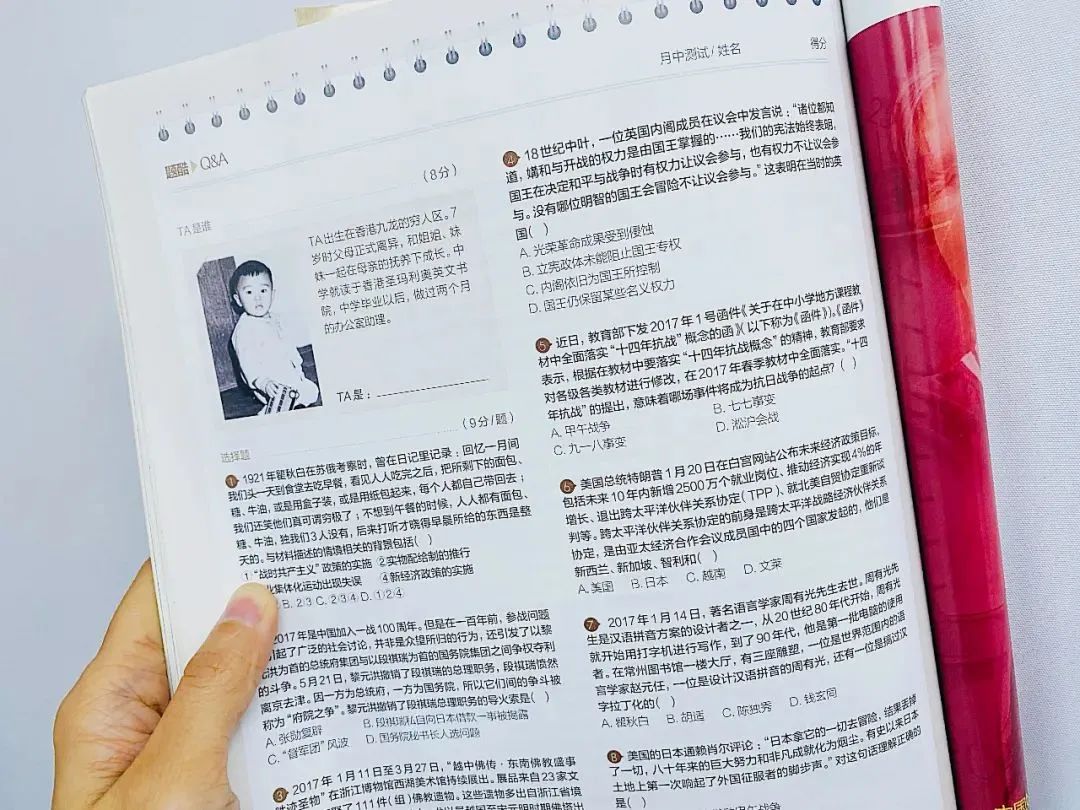 月中测试/姓名
得分
题酷 Q&A
(8分)
TA是谁
TA出生在香港九龙的穷人区。7
岁时父母正式离异,和姐姐、妹
妹一起在母亲的抚养下成长。中
学就读于香港圣玛利奥英文书
院,中学毕业以后,做过两个月
的办公室助理。
TA是:
(9分/题)
选择题
1 1921年瞿秋白在苏俄考察时,曾在日记里记录:回忆一月间
我们头一天到食堂去吃早餐,看见人人吃完之后,把所剩下的面包、
糖、牛油,或是用盒子装,或是用纸包起来,每个人都自己带回去;
我们还笑他们真可谓穷极了;不想到午餐的时候,人人都有面包、
糖、牛油,独我们3人没有,后来打听才晓得早晨所给的东西是整
天的。与材料描述的情境相关的背景包括( )
①“战时共产主义”政策的实施 ②实物配给制的推行
业集体化运动出现失误 ④新经济政策的实施
B. 2 3 C. 2 3 4 D. 1 2 4
2017年是中国加入一战100周年。但是在一百年前,参战问题
引起了广泛的社会讨论,并非是众望所归的行为,还引发了以黎
元洪为首的总统府集团与以段祺瑞为首的国务院集团之间争权夺利
的斗争。5月21日,黎元洪撤销了段祺瑞的总理职务,段祺瑞愤然
离京去津。因一方为总统府,一方为国务院,所以它们间的争斗被
称为“府院之争”。黎元洪撤销了段祺瑞总理职务的导火索是( )
A. 张勋复辟 B. 段祺瑞私自向日本借款一事被揭露
C. “督军团”风波 D. 国务院秘书长人选问题
3 2017年1月11日至3月27日,“越中佛传·东南佛教盛事
胜迹圣物”在浙江博物馆西湖美术馆持续展出。展品来自23家文
了111件(组)佛教遗物。这些遗物多出自浙江省境
4 18世纪中叶,一位英国内阁成员在议会中发言说:“诸位都知
道,媾和与开战的权力是由国王掌握的……我们的宪法始终表明,
国王在决定和平与战争时有权力让议会参与,也有权力不让议会参
与。没有哪位明智的国王会冒险不让议会参与。”这表明在当时的英
国( )
A. 光荣革命成果受到侵蚀
B. 立宪政体未能阻止国王专权
C. 内阁依旧为国王所控制
D. 国王仍保留某些名义权力
5 近日,教育部下发2017年1号函件《关于在中小学地方课程教
材中全面落实“十四年抗战”概念的函》(以下称为《函件》)。《函件》
表示,根据在教材中要落实“十四年抗战概念”的精神,教育部要求
对各级各类教材进行修改,在2017年春季教材中全面落实。“十四
年抗战”的提出,意味着哪场事件将成为抗日战争的起点?( )
A. 甲午战争 B. 七七事变
C. 九一八事变 D. 淞沪会战
6 美国总统特朗普1月20日在白宫网站公布未来经济政策目标,
包括未来10年内新增2500万个就业岗位、推动经济实现4%的年
增长、退出跨太平洋伙伴关系协定(TPP)、就北美自贸协定重新谈
判等。跨太平洋伙伴关系协定的前身是跨太平洋战略经济伙伴关系
协定,是由亚太经济合作会议成员国中的四个国家发起的,他们是
新西兰、新加坡、智利和( )
A. 美国 B. 日本 C. 越南 D. 文莱
7 2017年1月14日,著名语言学家周有光先生去世。周有光先
生是汉语拼音方案的设计者之一,从20世纪80年代开始,周有光
就开始用打字机进行写作,到了90年代,他是第一批电脑的使用
者。在常州图书馆一楼大厅,有三座雕塑,一位是世界范围内的语
言学家赵元任,一位是设计汉语拼音的周有光,还有一位是搞过汉
字拉丁化的( )
A. 瞿秋白 B. 胡适 C. 陈独秀 D. 钱玄同
8 美国的日本通赖肖尔评论:“日本拿它的一切去冒险,结果丢掉
了一切,八十年来的巨大努力和非凡成就化为烟尘。有史以来日本
土地上第一次响起了外国征服者的脚步声。”对这句话理解正确的
是( )